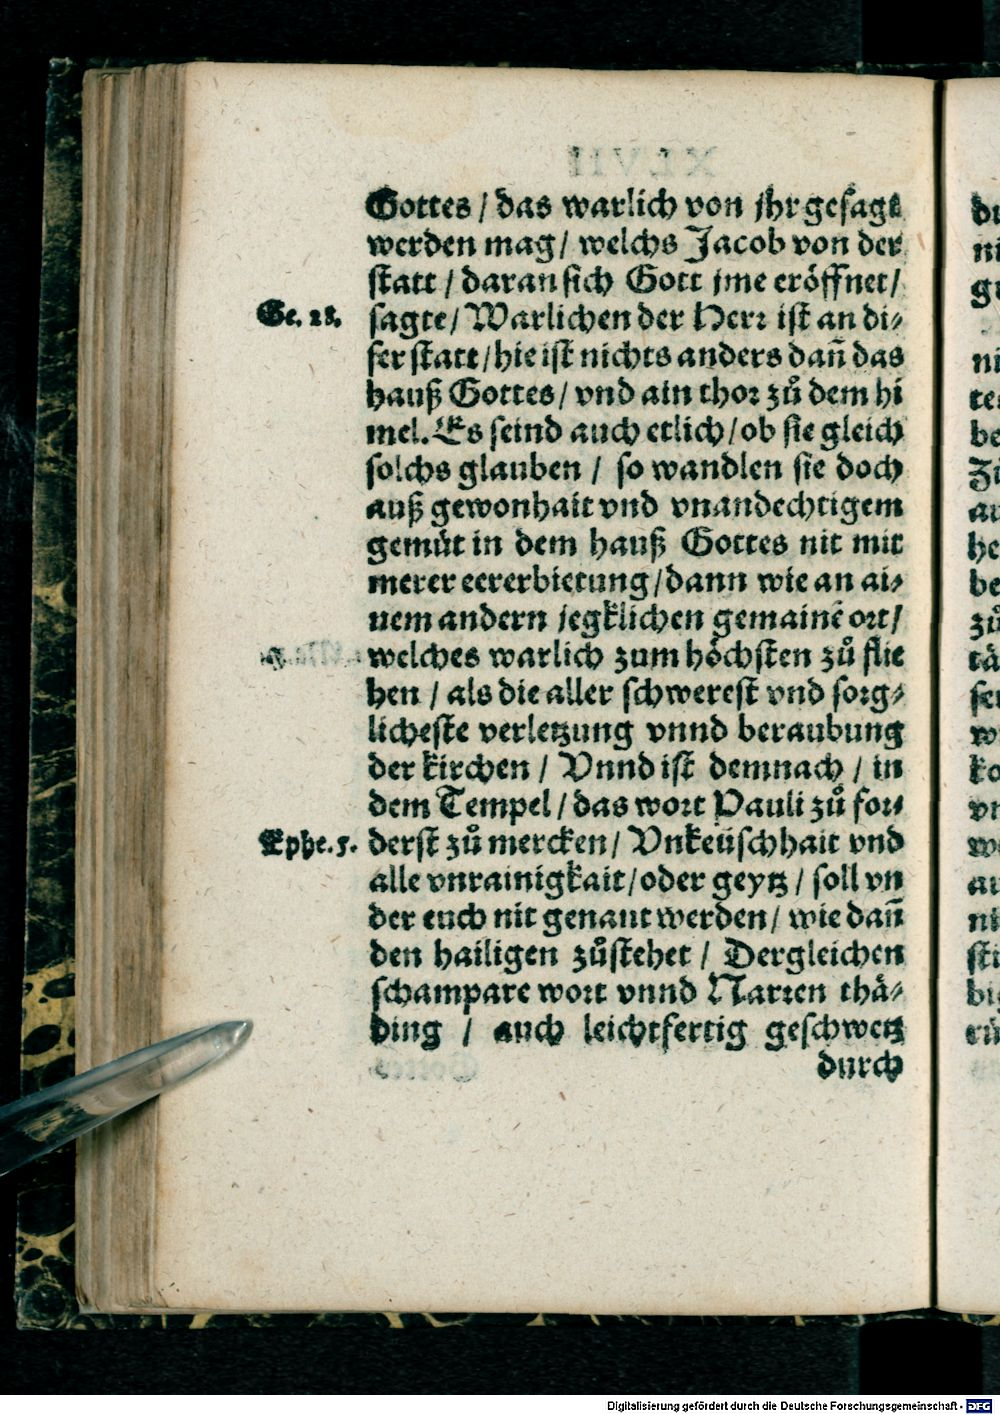 Gottes / das warlich von jhr gesagt
werden mag / welchs Jacob von der
statt / daran sich Gott jme eröffnet /
Ge. 28. sagte / Warlichen der Herr ist an di⸗
ser statt / hie ist nichts anders dañ das
hauß Gottes / vnd ain thor zů dem hi
mel. Es seind auch etlich / ob sie gleich
solchs glauben / so wandlen sie doch
auß gewonhait vnd vnandechtigem
gemüt in dem hauß Gottes nit mit
merer eererbietung / dann wie an ai⸗
nem andern jegklichen gemainē ort /
welches warlich zum höchsten zů flie
hen / als die aller schwerest vnd sorg⸗
licheste verletzung vnnd beraubung
der kirchen / Vnnd ist demnach / in
dem Tempel / das wort Pauli zů for⸗
Ephe. 5. derst zů mercken / Vnkeüschhait vnd
alle vnrainigkait / oder geytz / soll vn
der euch nit genant werden / wie dañ
den hailigen zůstehet / Dergleichen
schampare wort vnnd Narren thä⸗
ding / auch leichtfertig geschwetz
durch
Digitalisierung gefördert durch die Deutsche Forschungsgemeinschaft - DFG